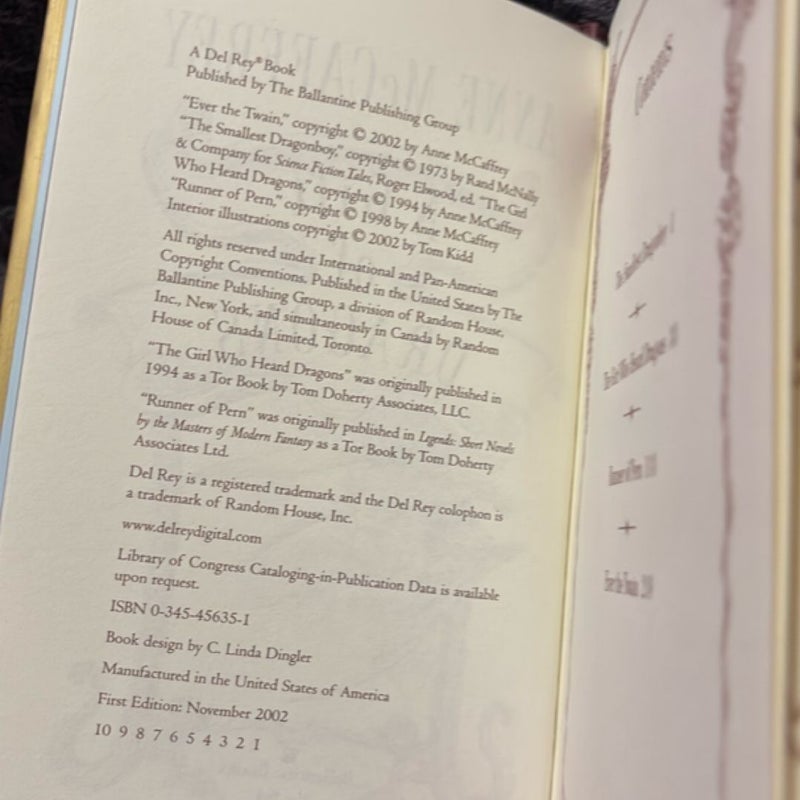 A Del Rey® Book
Published by The Ballantine Publishing Group
"Ever the Twain," copyright © 2002 by Anne McCaffrey
"The Smallest Dragonboy," copyright © 1973 by Rand McNally
& Company for Science Fiction Tales, Roger Elwood, ed. "The Girl
Who Heard Dragons," copyright © 1994 by Anne McCaffrey
"Runner of Pern," copyright © 1998 by Anne McCaffrey
Interior illustrations copyright © 2002 by Tom Kidd
All rights reserved under International and Pan-American
Copyright Conventions. Published in the United States by The
Ballantine Publishing Group, a division of Random House,
Inc., New York, and simultaneously in Canada by Random
House of Canada Limited, Toronto.
"The Girl Who Heard Dragons" was originally published in
1994 as a Tor Book by Tom Doherty Associates, LLC.
"Runner of Pern" was originally published in Legends: Short Novels
by the Masters of Modern Fantasy as a Tor Book by Tom Doherty
Associates Ltd.
Del Rey is a registered trademark and the Del Rey colophon is
a trademark of Random House, Inc.
www.delreydigital.com
Library of Congress Cataloging-in-Publication Data is available
upon request.
ISBN 0-345-45635-1
Book design by C. Linda Dingler
Manufactured in the United States of America
First Edition: November 2002
10 9 8 7 6 5 4 3 2 1
Contents
The Smallest Dragonboy 1
The Girl Who Heard Dragons
Runner of Pern
Ever the Twain